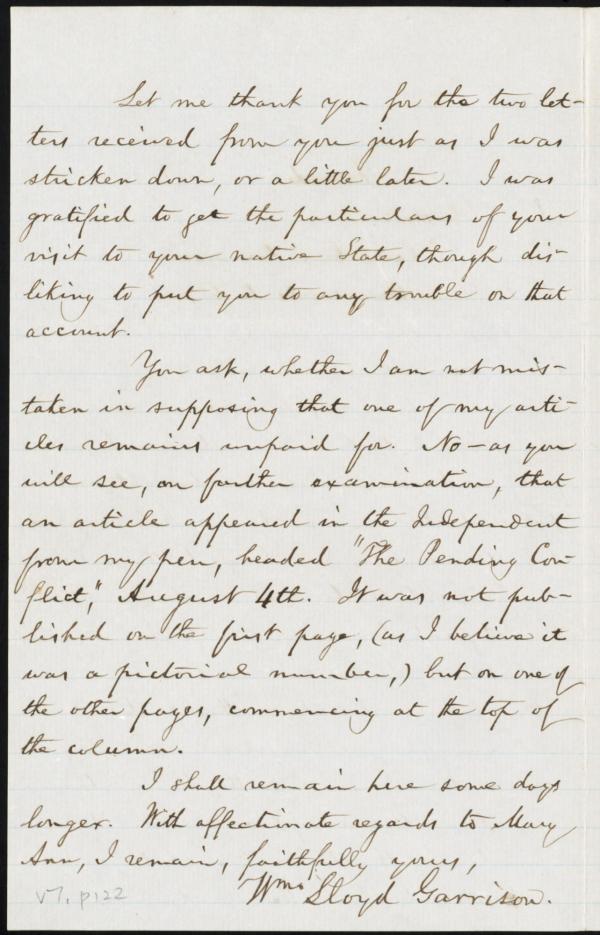 Let me thank you for the two let-
ters received from you just as I was
stricken down, or a little later. I was
gratified to get the particulars of your
visit to your native State, though dis-
liking to put you to any trouble on that
account.
You ask, whether I am not mis-
taken in supposing that one of my arti-
cles remains unpaid for. No – as you
will see, on further examination, that
an article appeared in the Independent
from my pen, headed "The Pending Con-
flict," August 4th. It was not pub-
lished on the first page, (as I believe it
was a pictorial number,) but on one of
the other pages, commencing at the top of
the column.
I shall remain here some days
longer. With affectionate regards to Mary
Ann, I remain, faithfully yours,
Wm. Lloyd Garrison.
v7, p122